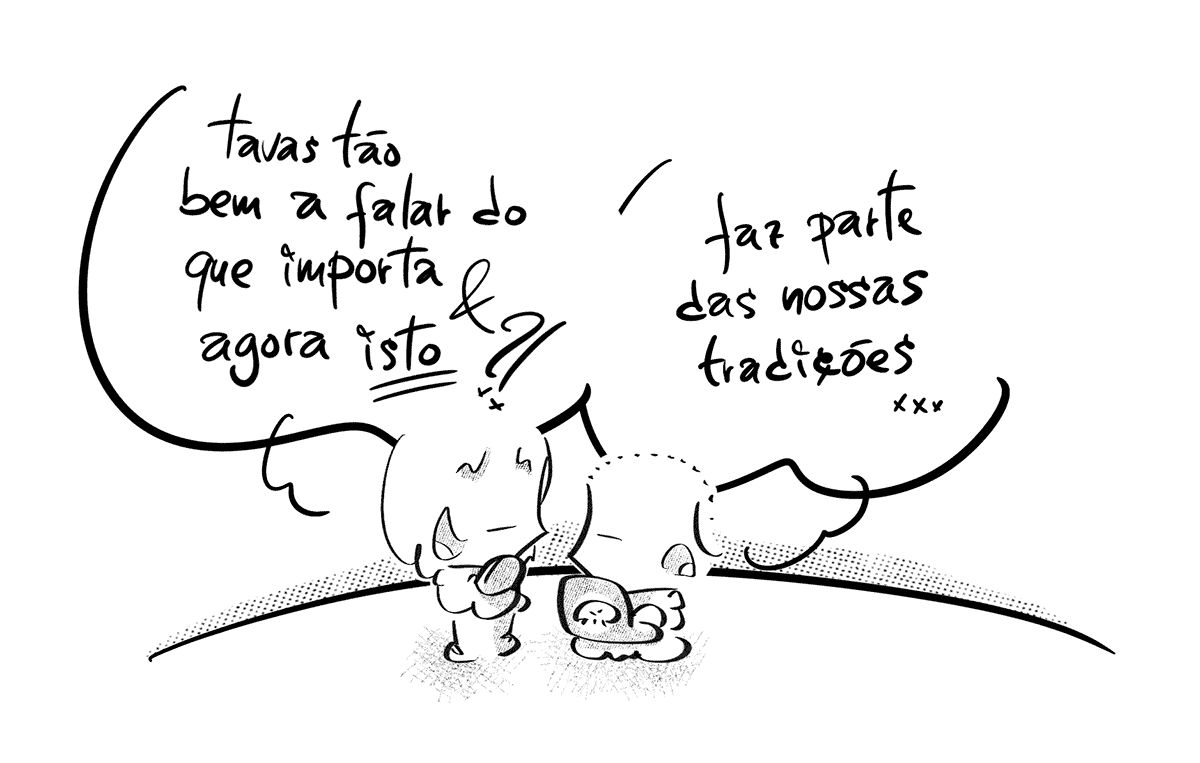 tavas tão
bem a falar do
que importa &
agora isto ?!
faz parte
das nossas
tradições
xxx